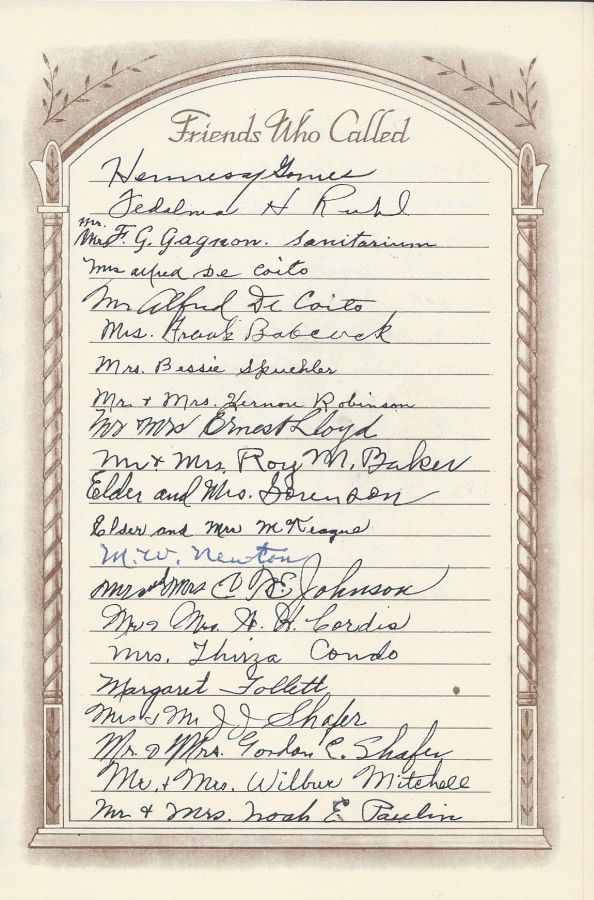 Friends Who Called
Hennessy Gomes
Fedalma H Ruhl
Mr. Mrs F. G. Gagnon. Sanitarium
Mrs alfred De Coito
Mr Alfred De Coito
Mrs. Frank Babcock
Mrs. Bessie Spuehler
Mr. + Mrs. Vernon Robinson
Mr Mrs Ernest Lloyd
Mr + Mrs. Roy M. Baker
Elder and Mrs. Sorenson
Elder and Mrs McKeague
M. W. Newton
Mr and Mrs C E Johnson
Mr & Mrs. H. H. Cordis
Mrs. Thirza Condo
Margaret Follett
Mrs & Mr J J Shafer
Mr. & Mrs. Gordon E. Shafer
Mr. + Mrs. Wilbur Mitchell
Mr. & Mrs. Noah E Paulin